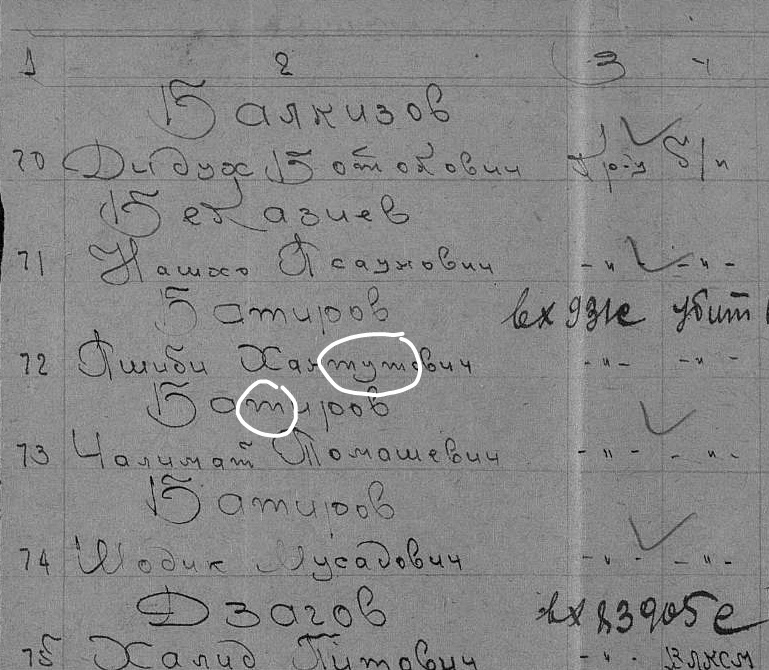 1 2 3 4
Балкизов
70 Дидух Ботокович Кр-ц б/п
Беказиев
71 Нашхо Псаунович -"- -"-
Батиров вх 931с убит
72 Пшиби Хантутович -"- -"-
Батиров
73 Чалимат Томашевич -"- -"-
Батиров
74 Шодик Мусадович -"- -"-
Дзагов вх 83905с
75 Халид Питович -"- ВЛКСМ